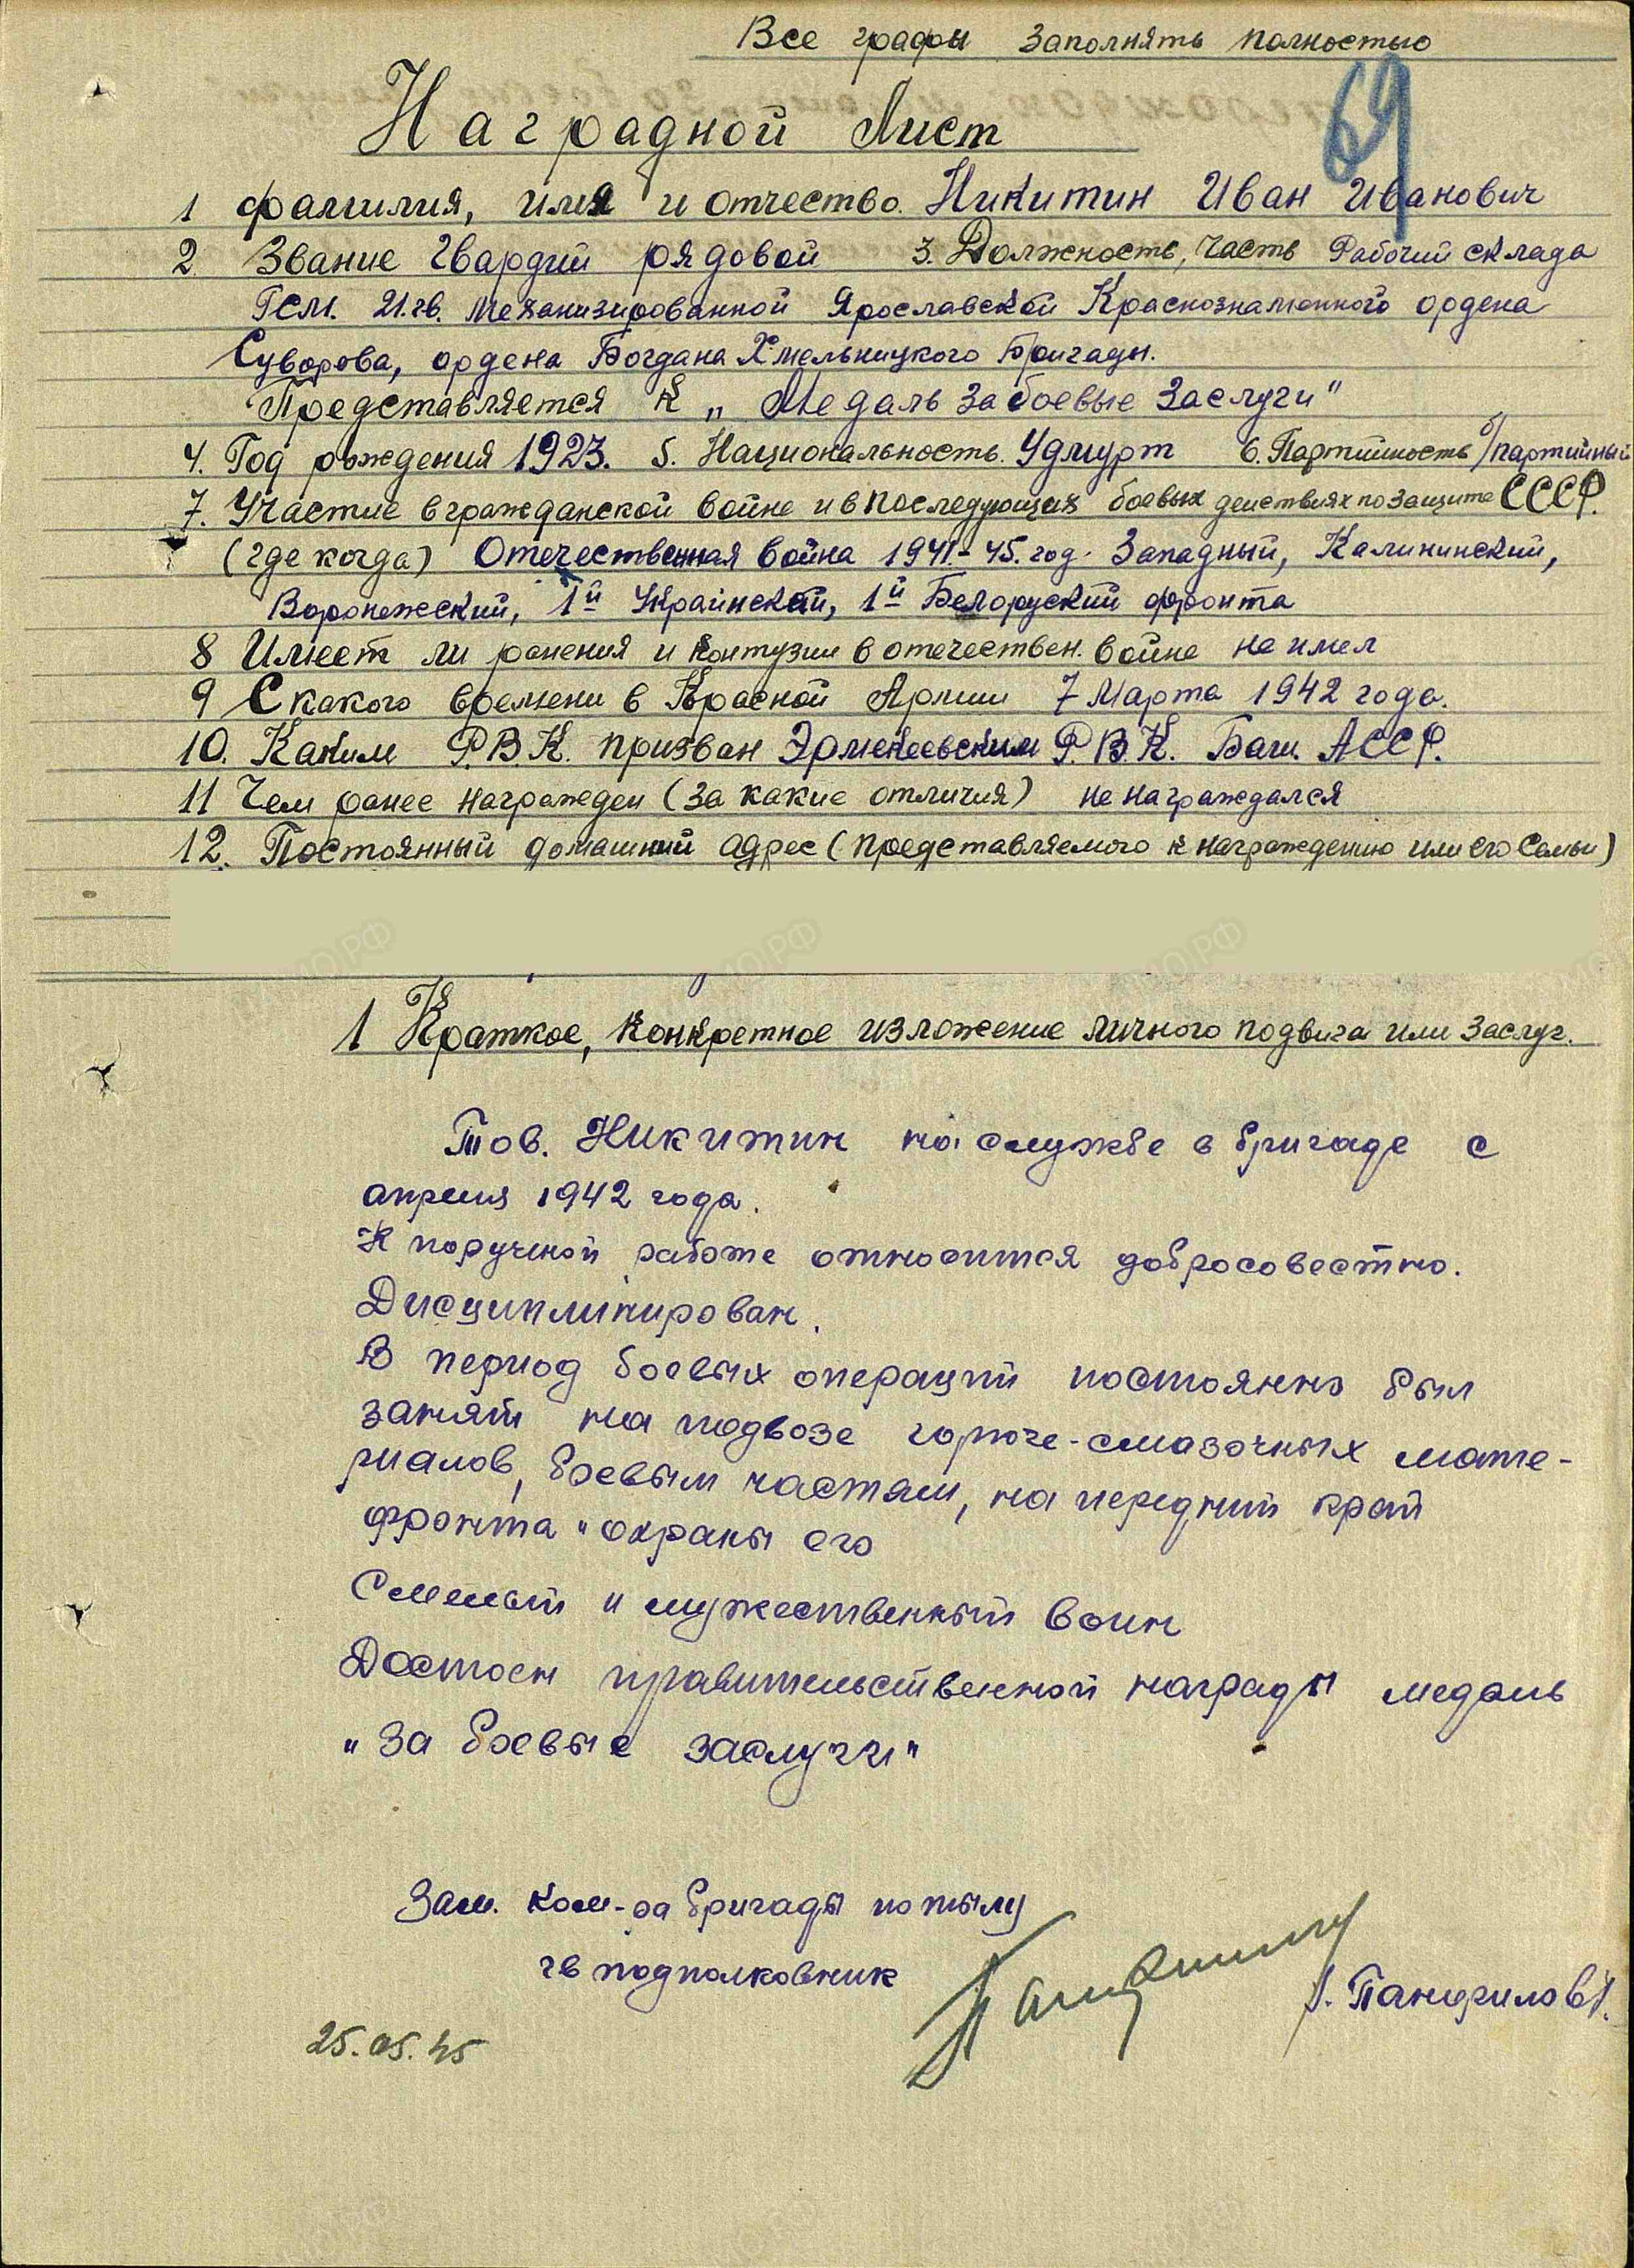 Все графы заполнять полностью
69
Наградной Лист
1 фамилия, имя и отчество. Никитин Иван Иванович
2. Звание Гвардий рядовой 3. Должность, часть Рабочий склада
Гсм. 21.гв. Механизированной Ярославской Краснознаменного ордена
Суворова, ордена Богдана Хмельницкого бригады.
Представляется к „Медаль За боевые Заслуги"
4. Год рождения 1923. 5. Национальность. Удмурт 6. Партийность б/партийный
7. Участие в гражданской войне и в последующих боевых действиях по защите СССР.
(где когда) Отечественная война 1941-45. год. Западный, Калининский,
Воронежский, 1й Украинский, 1й Белоруский фронта
8 Имеет ли ранения и контузии в отечествен. войне не имел
9 С какого времени в Красной Армии 7 Марта 1942 года.
10. Каким Р.В.К. призван Эрмекеевским Р.В.К. Баш. АССР.
11 Чем ранее награжден (за какие отличия) не награждался
12. Постоянный домашний адрес (представляемого к награждению или его семьи)
1 Краткое, конкретное изложение личного подвига или заслуг.
Тов. Никитин на службе в бригаде с
апреля 1942 года.
К поручной работе относится добросовестно.
Дисциплинирован.
В период боевых операций постоянно был
занят на подвозе горюче-смазочных мате-
риалов, боевым частям, на передний край
фронта и охраны его
Смелый и мужественный воин
Достоен правительственной награды медаль
„За боевые заслуги"
Зам. ком-ра бригады по тылу
гв подполковник
/. Панфилов/.
25.05.45